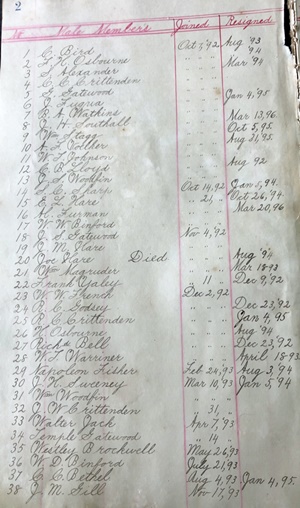 2
No Male Members Joined Resigned
1 C. Bird Oct 7, '92 Aug '93
2 L. H. Osbourne " " " '94
3 S. Alexander " " " Mar '94
4 C. C. Crittenden " " "
5 G. Gatewood " " " Jan 4, 95
6 J. Fuqua " " "
7 B. A. Watkins " " " Mar 13, 96.
8 C. H. Southall " " " Oct 5, 95.
9 Wm Stagg " " " Aug 21, 95.
10 A. S. Collier " " "
11 W. S. Johnson " " " Aug 92
12 C. B. Lloyd " " "
13 J. S. Woodfin " " "
14 L. C. Sharp Oct 14, 92 Jan 5, 94.
15 E. L. Hare " 21, " Oct 26, '94
16 H. Furman " " " Mar 20, 96
17 W. W. Binford " " "
18 J. A. Gatewood Nov 4, '92
19 J. M. Hare " " "
20 Joe Hare Died " " " Aug '94
21 Wm Magruder " " " Mar 18 93
22 Frank Yaley " 11 " Dec 9, '92
23 W. W. French Dec 2, '92
24 C. C. Godsey " " " Dec 23, '92
25 C. C. Crittenden " " " Jan 4, 95
26 W. Osbourne " " " Aug '94
27 Richd Bell " " " Dec 23, 92
28 W. T. Warriner " " " April 18 93.
29 Napoleon Fisher Feb 24, '93 Aug 3, '94
30 J. H. Sweeney Mar 10, '93 Jan 5, '94
31 Wm Woodfin " " "
32 J. W. Crittenden " 31, "
33 Walter Jack Apr 7, '93
34 Temple Gatewood " 14 "
35 Westley Brockwell May 26, 93
36 W. D. Binford July 21, '93
37 C. C. Bethel Aug 4, 93 Jan 4, 95.
38 J. M. Gill Nov 17, 93